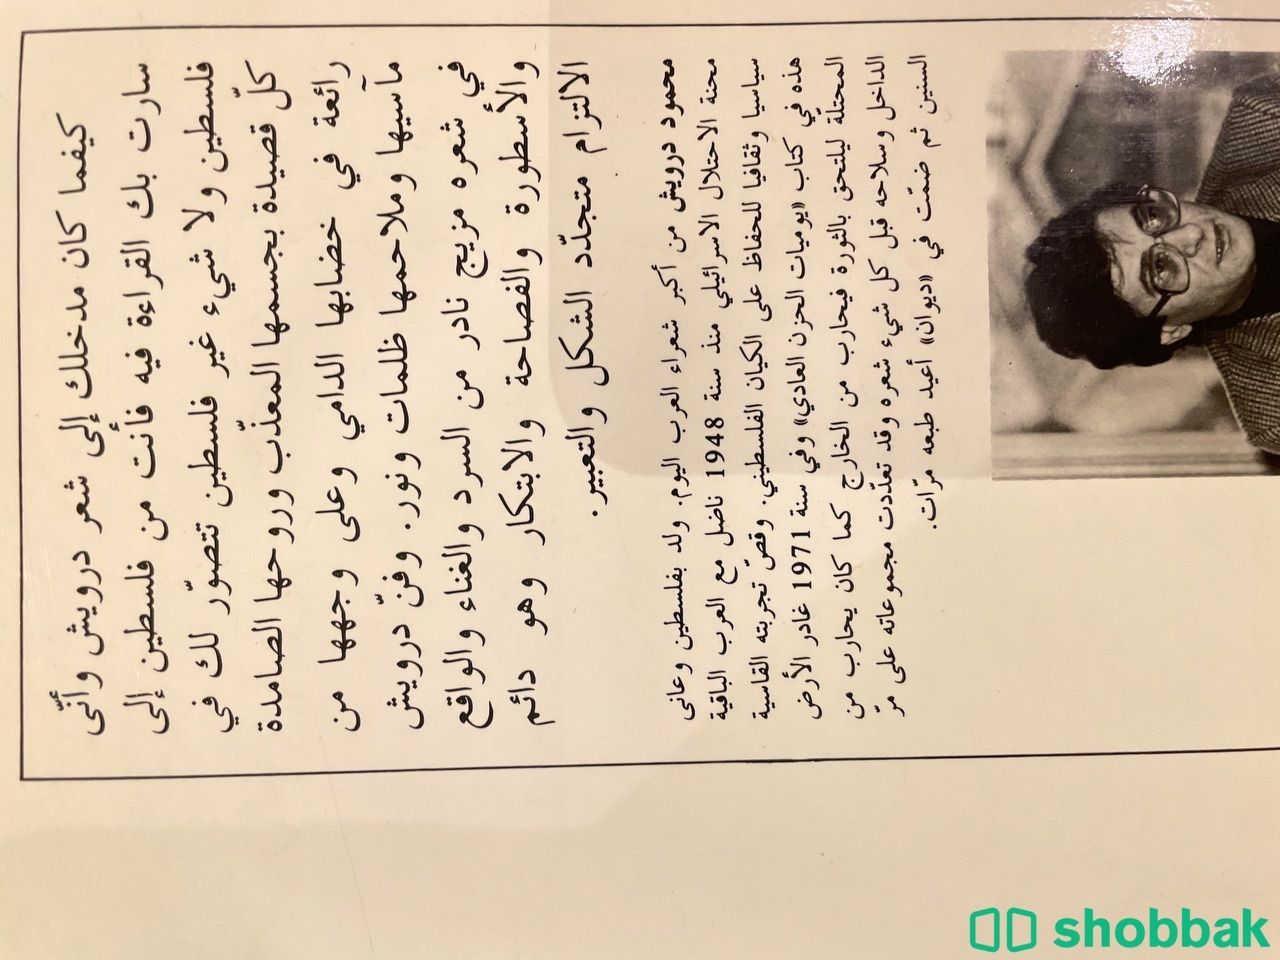 كيفما كان مدخلك إلى شعر درويش وأنّى
سارت بك القراءة فيه فأنت من فلسطين إلى
فلسطين ولا شيء غير فلسطين تتصوّر لك في
كلّ قصيدة بجسمها المعذّب وروحها الصامدة
رائعة في خضابها الدامي وعلى وجهها من
مآسيها وملاحمها ظلمات ونور. وفنّ درويش
في شعره مزيج نادر من السرد والغناء والواقع
والأسطورة والفصاحة والابتكار وهو دائم
الالتزام متجدّد الشكل والتعبير.
محمود درويش من أكبر شعراء العرب اليوم. ولد بفلسطين وعانى
محنة الاحتلال الاسرائيلي منذ سنة 1948 ناضل مع العرب الباقية
سياسيا وثقافيا للحفاظ على الكيان الفلسطيني. وقصّ تجربته القاسية
هذه في كتاب «يوميات الحزن العادي» وفي سنة 1971 غادر الأرض
المحتلّة ليلتحق بالثورة فيحارب من الخارج كما كان يحارب من
الداخل وسلاحه قبل كل شيء شعره وقد تعدّدت مجموعاته على مرّ
السنين ثم ضمّت في «ديوان» أعيد طبعه مرّات.
shobbak